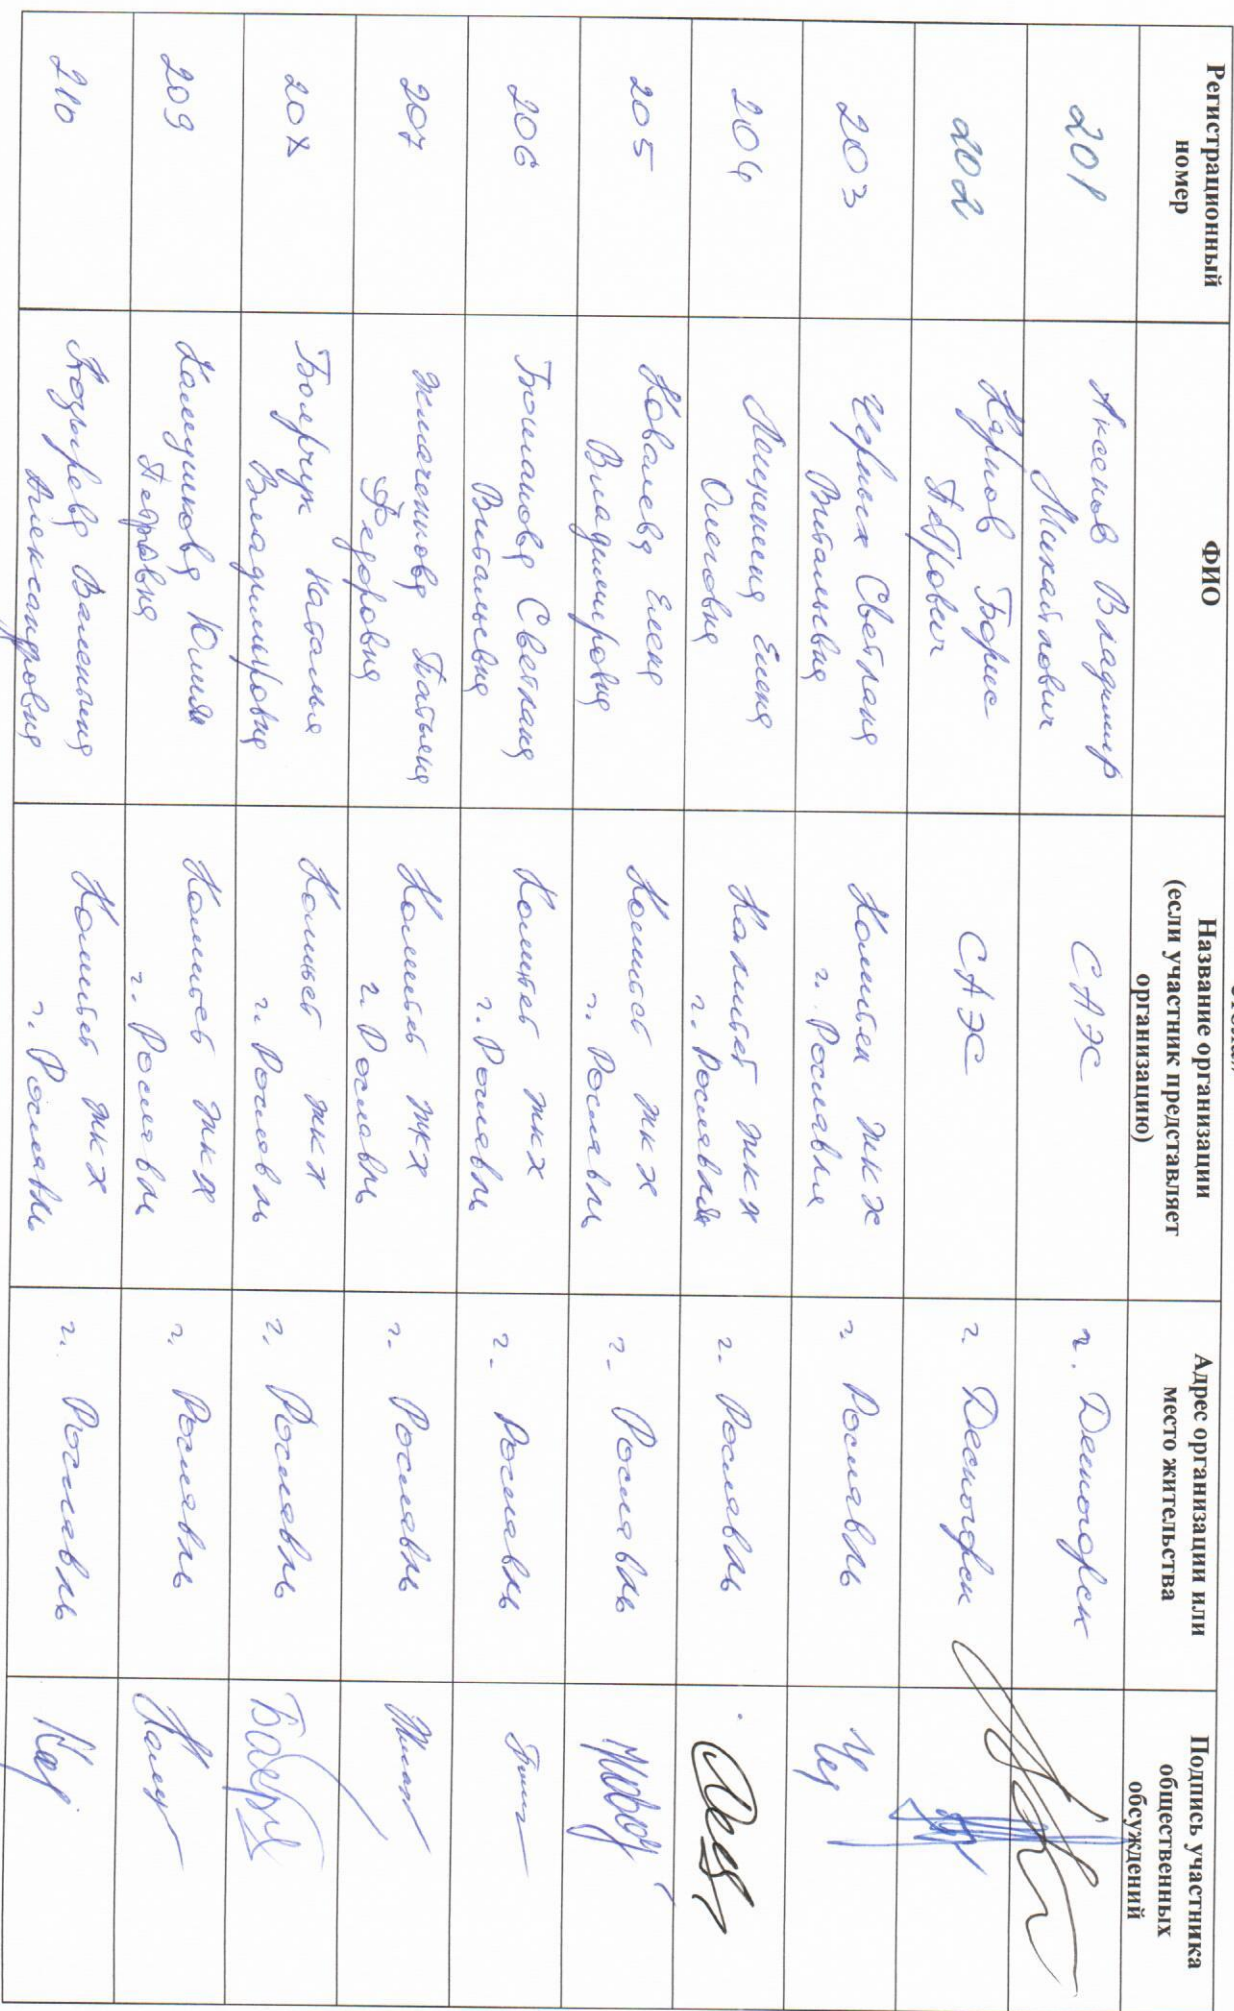 Регистрационный
номер
ФИО
Название организации
(если участник представляет
организацию)
Адрес организации или
место жительства
Подпись участника
общественных
обсуждений
201
Аксенов Владимир
Михайлович
САЭС
г. Десногорск
202
Карпов Борис
Петрович
САЭС
г. Десногорск
203
Черных Светлана
Витальевна
Комитет ЖКХ
г. Рославля
г. Рославль
204
Елена
Олеговна
Комитет ЖКХ
г. Рославля
г. Рославль
205
Ковалева Елена
Владимировна
Комитет ЖКХ
г. Рославль
г. Рославль
206
Светлана
Витальевна
Комитет ЖКХ
г. Рославль
г. Рославль
207
Татьяна
Федоровна
Комитет ЖКХ
г. Рославль
г. Рославль
208
Наталья
Владимировна
Комитет ЖКХ
г. Рославль
г. Рославль
209
Юлия
Петровна
Комитет ЖКХ
г. Рославль
г. Рославль
210
Козырева Валентина
Александровна
Комитет ЖКХ
г. Рославль
г. Рославль